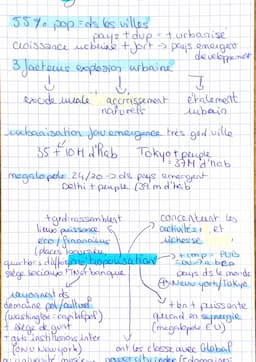 55% pop = ds les villes
pays + dvp = + urbanisé
croissance urbaine + fort → pays émergent
développement
3 facteurs explosion urbaine
exode rurale accroissement étalement
naturels urbain
urbanisation émergence très grd ville
35 + 10 M d'hab Tokyo + peuplé
37 M d'hab
megalopole 24/20 → ds pays émergent
Delhi + peuplé (39 m d'hab
+ grd rassemblent
lieux puissance
éco / financière
(places boursière
quartiers d'affaire
siège sociaux FTN et banque
métropolisation
concentrent les
activités et
richesse
+ emp = PUIB
pays ds le monde
New york / Tokyo
rayonnent ds
domaine pol / culturel
(washington - capital pol)
+ siège de gvnt
+ grds institutions inter
(onu New york)
+ bn + puissante
quand en synergie
(megalopole EU)
ont les classe avec Global
power city index